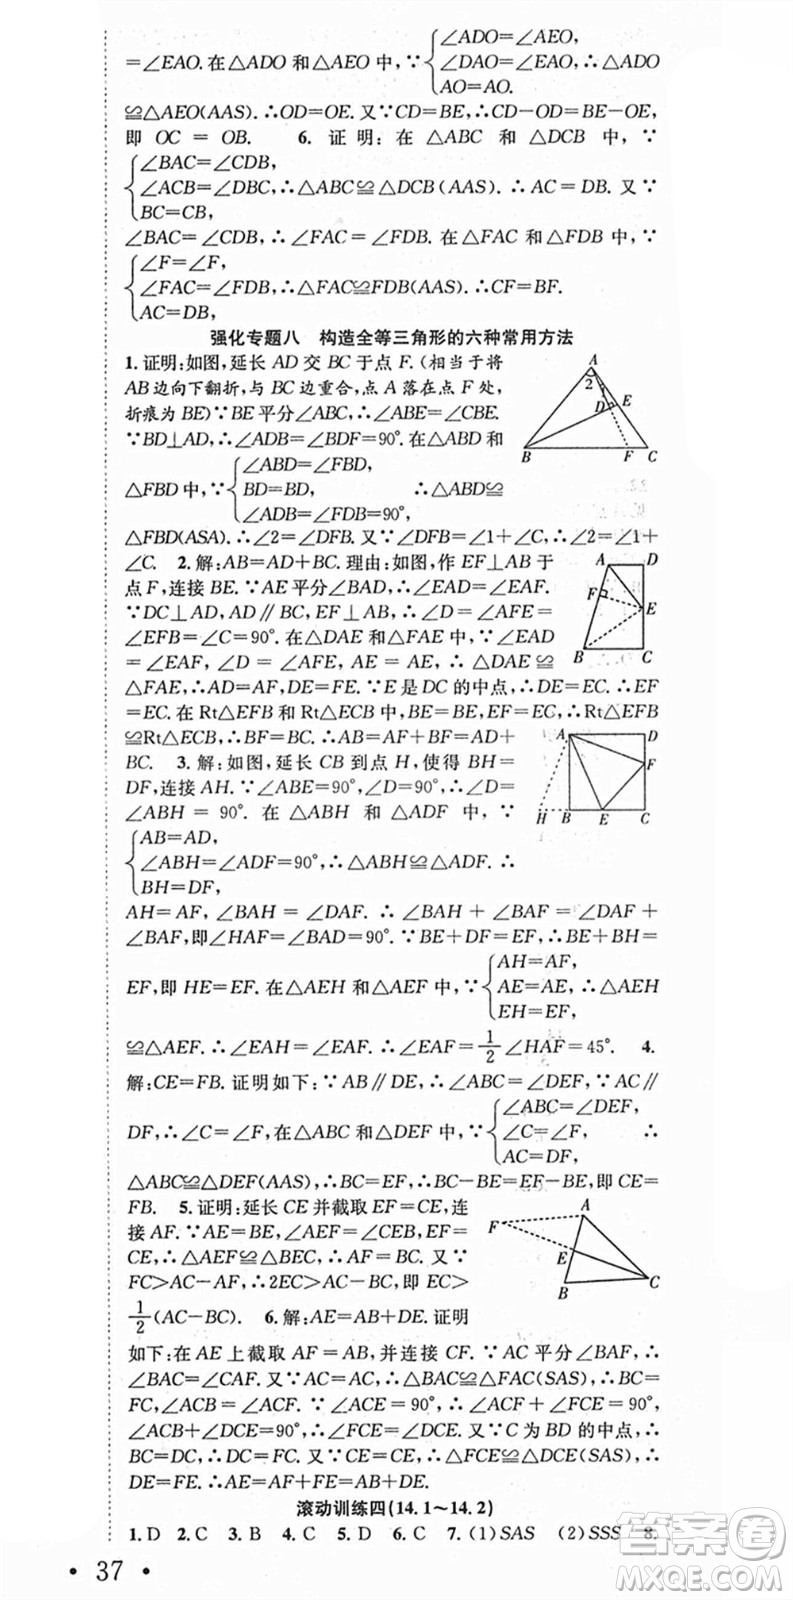 ∠ADO=∠AEO,
=∠EAO. 在△ADO 和△AEO 中,∵ ∠DAO=∠EAO,∴△ADO
AO=AO.
≌△AEO(AAS). ∴OD=OE. 又∵CD=BE,∴CD-OD=BE-OE,
即 OC = OB. 6. 证明: 在 △ABC 和 △DCB 中, ∵
∠BAC=∠CDB,
∠ACB=∠DBC,∴△ABC≌△DCB(AAS). ∴AC=DB. 又∵
BC=CB,
∠BAC=∠CDB,∴∠FAC=∠FDB. 在△FAC 和△FDB 中,∵
∠F=∠F,
∠FAC=∠FDB,∴△FAC≌FDB(AAS). ∴CF=BF.
AC=DB,
强化专题八 构造全等三角形的六种常用方法
1. 证明:如图,延长 AD 交 BC 于点 F. (相当于将
AB 边向下翻折,与 BC 边重合,点 A 落在点 F 处,
折痕为 BE)∵BE 平分∠ABC,∴∠ABE=∠CBE.
∵BD⊥AD,∴∠ADB=∠BDF=90°. 在△ABD 和
∠ABD=∠FBD,
△FBD 中,∵ BD=BD, ∴△ABD≌
∠ADB=∠FDB=90°,
△FBD(ASA). ∴∠2=∠DFB. 又∵∠DFB=∠1+∠C,∴∠2=∠1+
∠C. 2. 解:AB=AD+BC. 理由:如图,作 EF⊥AB 于
点 F,连接 BE. ∵AE 平分∠BAD,∴∠DAE=∠EAF.
∵DC⊥AD, AD∥BC, EF⊥AB, ∴∠D=∠AFE=
∠EFB=∠C=90°. 在△DAE 和△FAE 中,∵∠EAD
=∠EAF, ∠D = ∠AFE, AE = AE, ∴ △DAE ≌
△FAE,∴AD=AF,DE=FE. ∵E 是 DC 的中点,∴DE=EC. ∴EF
=EC. 在 Rt△EFB 和 Rt△ECB 中,BE=BE,EF=EC,∴Rt△EFB
≌Rt△ECB,∴BF=BC. ∴AB=AF+BF=AD+
BC. 3. 解:如图,延长 CB 到点 H,使得 BH=
DF,连接 AH. ∵∠ABE=90°,∠D=90°,∴∠D=
∠ABH = 90°. 在 △ABH 和 △ADF 中, ∵
AB=AD,
∠ABH=∠ADF=90°,∴△ABH≌△ADF. ∴
BH=DF,
AH=AF, ∠BAH = ∠DAF. ∴ ∠BAH + ∠BAF = ∠DAF +
∠BAF,即∠HAF=∠BAD=90°. ∵BE+DF=EF,∴BE+BH=
AH=AF,
EF,即 HE=EF. 在△AEH 和△AEF 中,∵ AE=AE,∴△AEH
EH=EF,
≌△AEF. ∴∠EAH=∠EAF. ∴∠EAF=1/2∠HAF=45°. 4.
解:CE=FB. 证明如下:∵AB∥DE,∴∠ABC=∠DEF,∵AC∥
∠ABC=∠DEF,
DF,∴∠C=∠F,在△ABC 和△DEF 中,∵ ∠C=∠F, ∴
AC=DF,
△ABC≌△DEF(AAS),∴BC=EF,∴BC-BE=EF-BE,即 CE=
FB. 5. 证明:延长 CE 并截取 EF=CE,连
接 AF. ∵AE=BE,∠AEF=∠CEB,EF=
CE,∴△AEF≌△BEC,∴AF=BC. 又∵
FC>AC-AF,∴2EC>AC-BC,即 EC>
1/2(AC-BC). 6. 解:AE=AB+DE. 证明
如下:在 AE 上截取 AF=AB,并连接 CF. ∵AC 平分∠BAF,∴
∠BAC=∠CAF. 又∵AC=AC,∴△BAC≌△FAC(SAS),∴BC=
FC,∠ACB=∠ACF. ∵∠ACE=90°,∴∠ACF+∠FCE=90°,
∠ACB+∠DCE=90°,∴∠FCE=∠DCE. 又∵C 为 BD 的中点,∴
BC=DC,∴DC=FC. 又∵CE=CE,∴△FCE≌△DCE(SAS),∴
DE=FE. ∴AE=AF+EF=AB+DE.
滚动训练四(14.1~14.2)
1. D 2. C 3. B 4. C 5. D 6. C 7. (1)SAS (2)SSS 8.
• 37 •
答案圈
MXQE.COM
A
2
D
E
B
F
C
A
D
F
E
B
C
A
D
F
H
B
E
C
A
F
E
B
C